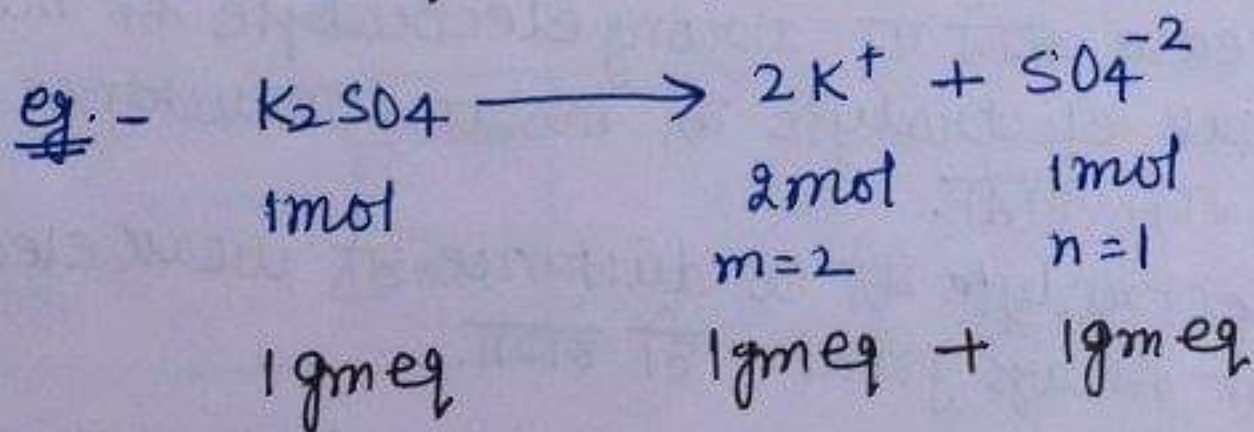 eg. - K2SO4 ⟶ 2K⁺ + SO4⁻²
1mol 2mol 1mol
m=2 n=1
1gmeq 1gmeq + 1gmeq